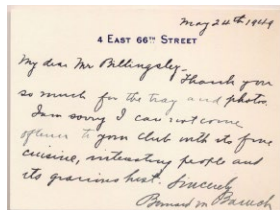 May 24th 1949
4 EAST 66TH STREET
My dear Mr Billingsley -
Thank you
so much for the tray and photos.
I am sorry I can not come
oftener to your club with its fine
cuisine, interesting people and
its gracious host. Sincerely
Bernard M Baruch